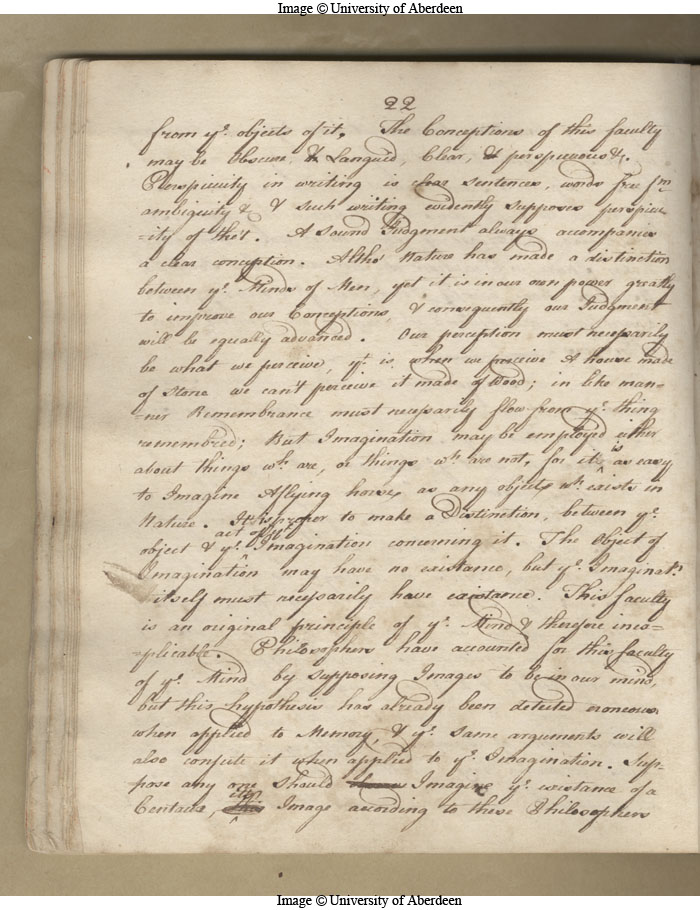 Image © University of Aberdeen
22
from yᵉ. objects of it. The Conceptions of this faculty
may be Obscure, & Languid, Clear, & perspicuous &c.
Perspicuity in writing is clear sentences, words free fm
ambiguity &c & such writing evidently supposes perspicu
=ity of thot. A sound Judgment always accompanies
a clear conception. Altho' Nature has made a distinction
between yᵉ. Minds of Men, yet it is in our own power greatly
to improve our Conceptions, & consequently our Judgment
will be equally advanced. Our perception must necessarily
be what we perceive, yt. is, when we preceive A house made
of Stone we can't perceive it made of Wood; in like man=
=ner Remembrance must necessarily flow from yᵉ. thing
remembred; But Imagination may be employed either
about things wh. are, or things wh. are not, for it is as easy
to Imagine A flying horse, as any object wh. exists in
Nature. It is proper to make a Distinction, between yᵉ.
object & yᵉ. act of Imagination concerning it. The Object of
Imagination may have no existance, but yᵉ. Imaginatn.
itself must necessarily have existance. This faculty
is an original principle of yᵉ. Mind & therefore inex=
=plicable. Philosophers have accounted for this faculty
of yᵉ. Mind by supposing Images to be in our mind,
but this hypothesis has already been detected eroneous
when applied to Memory, & yᵉ. same arguments will
also confute it when applied to yᵉ. Imagination. Sup=
pose any one should Imagine yᵉ. existance of a
Centaur, Image according to these Philosophers
Image © University of Aberdeen